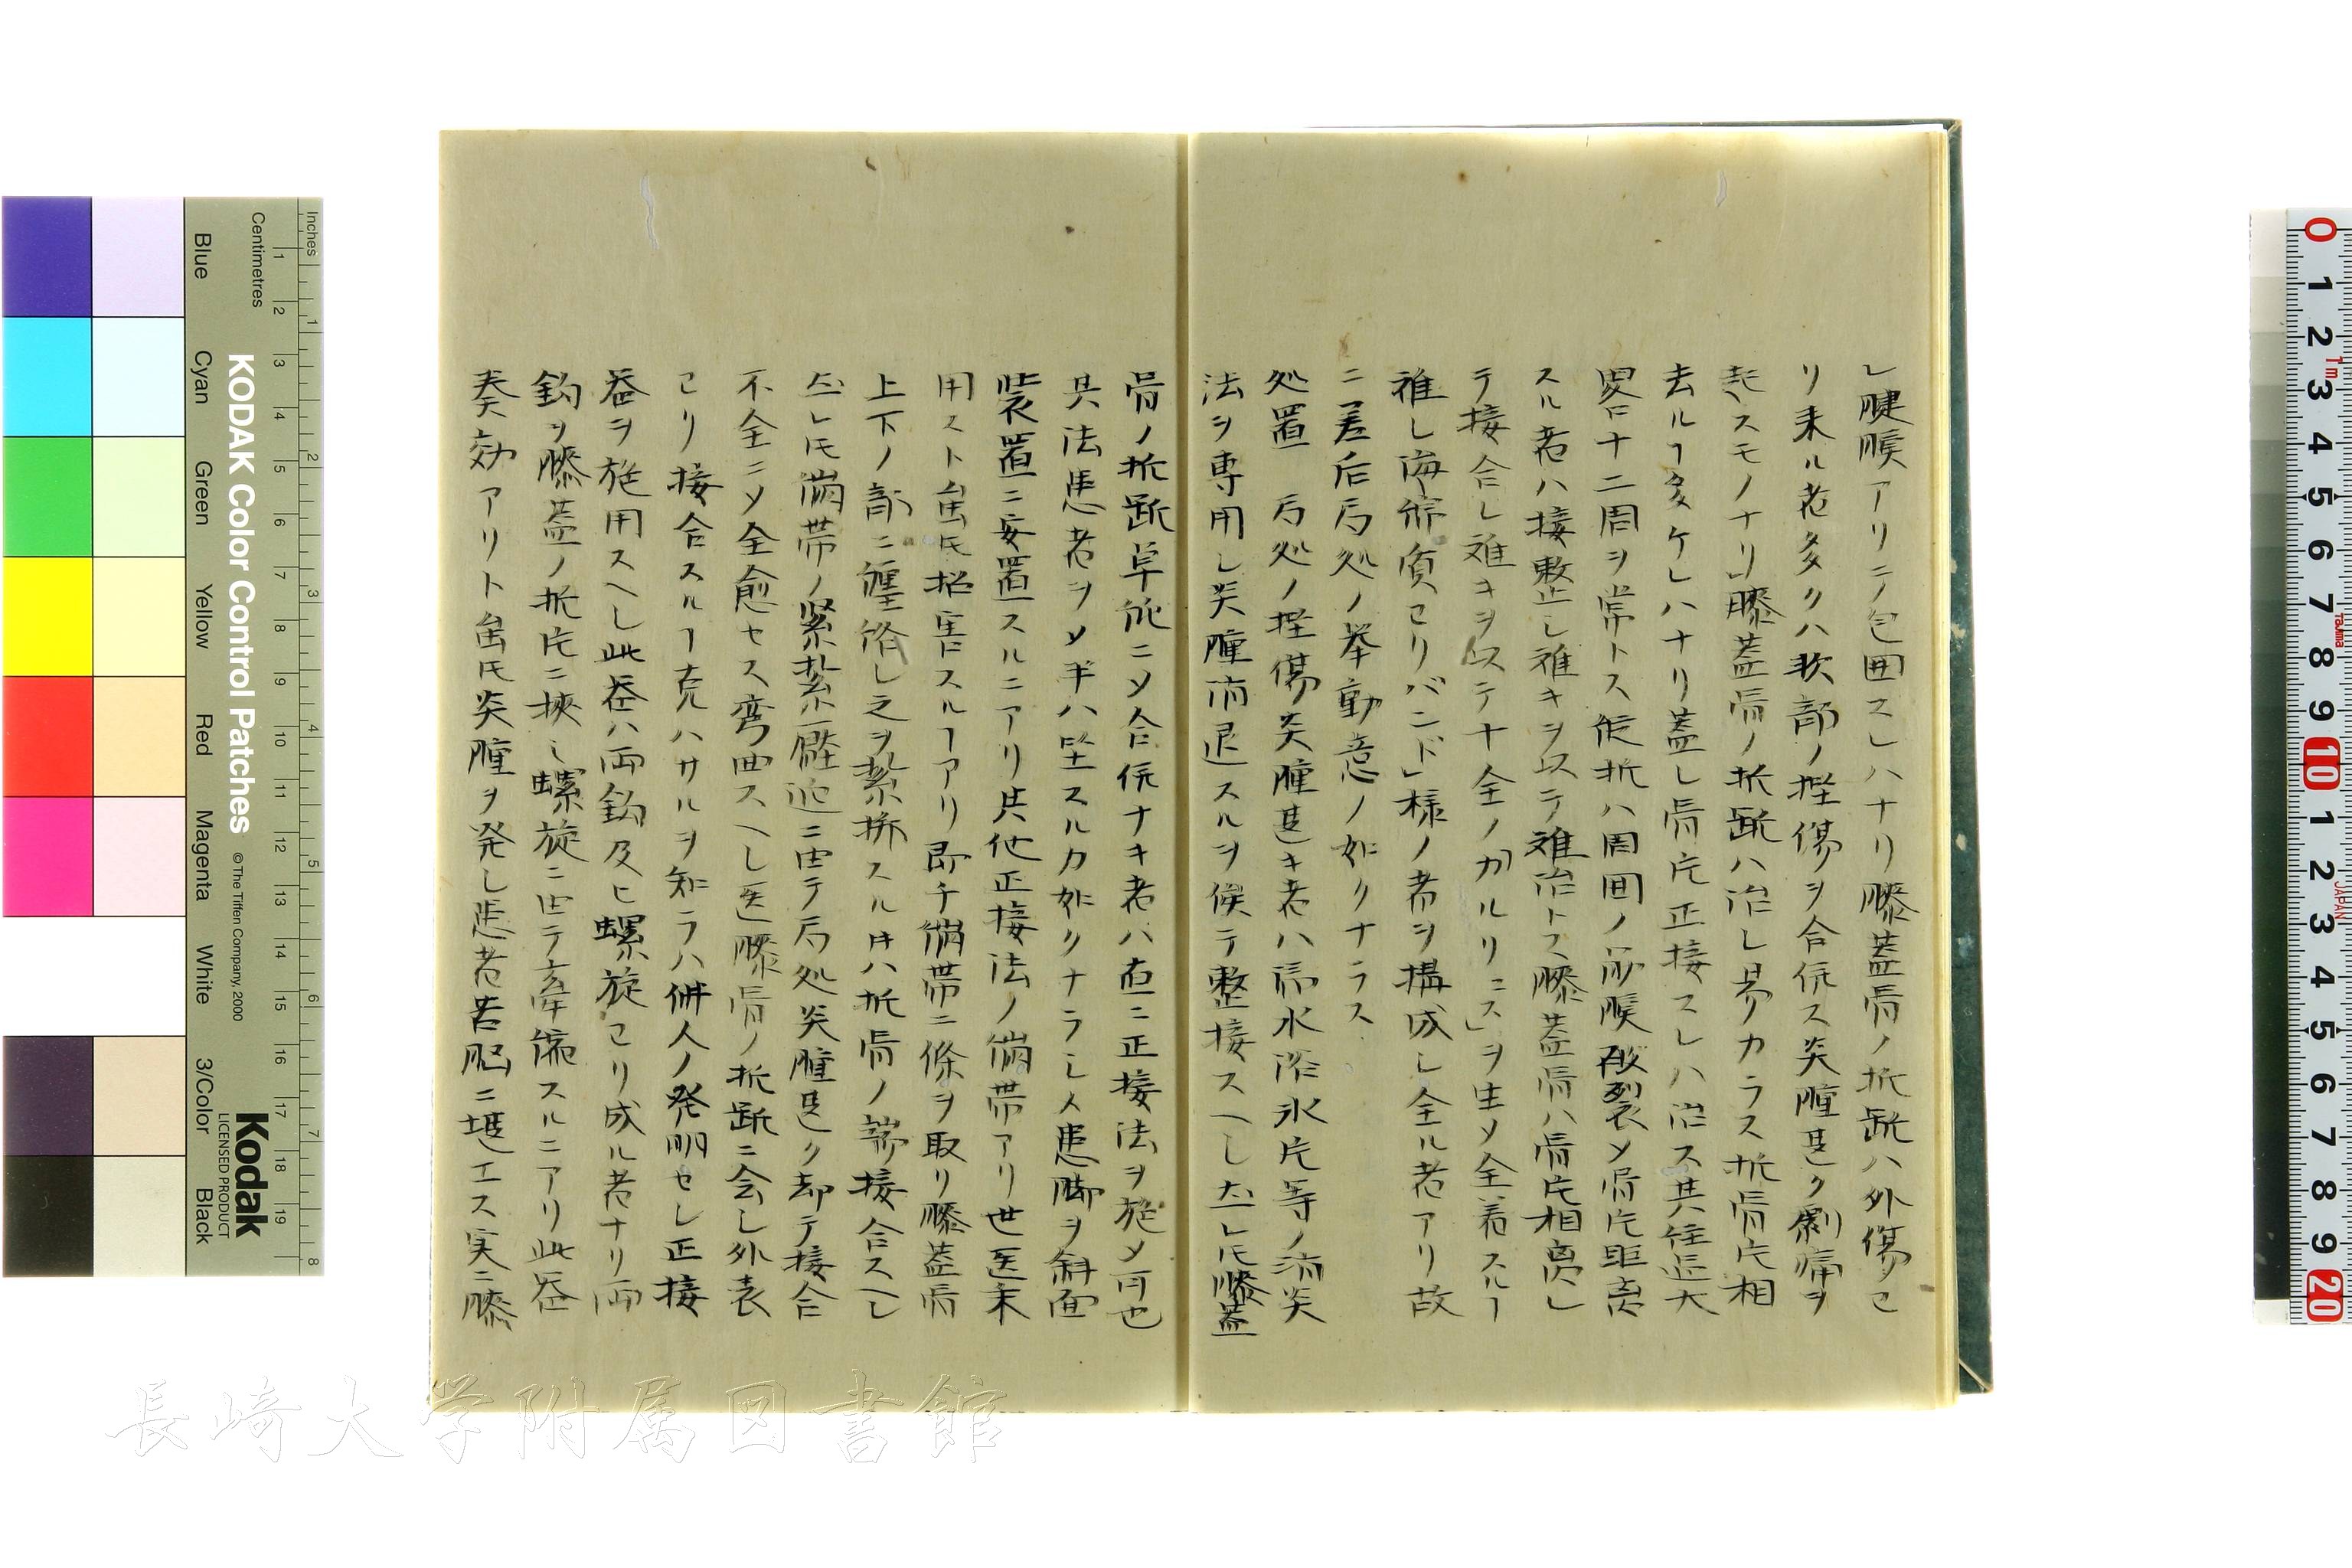 レ腱膜アリテ包囲スレハナリ膝蓋骨ノ折跡ハ外傷ヨ
リ来ル者多クハ軟部ノ挫傷ヲ合併ス炎腫甚ク劇痛ヲ
起スモノナリ」膝蓋骨ノ折跡ハ治シ易カラス折骨片相
去ルヿ多ケレハナリ蓋シ骨片正接スレハ治ス其経過大
畧六十二周ヲ常トス縦折ハ周囲ノ筋膜破裂メ骨片距离
スル者ハ接整シ難キヲ以テ難治トス膝蓋骨ハ骨片相离レ
テ接合シ難キヲ以テ十全ノ「カルリュス」ヲ生メ全着スルヿ
難シ海綿質ヨリ「バンド」様ノ者ヲ構成シ全ル者アリ故
ニ差后局処ノ挙動意ノ如クナラス
処置 局処ノ挫傷炎腫甚キ者ハ冷水溶氷片等ノ消炎
法ヲ専用シ炎腫消退スルヲ候テ整接スヘし然レ氏膝蓋
骨ノ折跡単純ニメ合併ナキ者ハ直ニ正接法ヲ施メ可也
其法患者ヲメ半ハ坐スルカ如クナラシメ患脚ヲ斜面
装置ニ安置スルニアリ其他正接法ノ繃帯アリ世医来
用スト虽氏招害スルヿアリ即チ繃帯二條ヲ取リ膝蓋骨
上下ノ部ニ纏絡シ之ヲ紮拆スル片ハ折骨ノ端接合スヘし
然レ氏繃帯ノ緊紮壓迫ニ由テ局処炎腫甚ク却テ接合
不全ニメ全愈セス弯曲スヘし医膝骨ノ折跡ニ会し外表
ヨリ接合スルヿ克ハサルヲ知ラハ併人ノ発明セし正接
器ヲ施用スヘし此器ハ両鈎及ヒ螺旋ヨリ成ル者ナリ両
鈎ヲ膝蓋ノ折片ニ挾ミ螺旋ニ由テ牽縮スルニアリ此器
奏効アリト虽氏炎腫ヲ発シ患者苦悩ニ堪エス実ニ膝
長崎大学附属図書館
KODAK Color Control Patches
© The Tiffen Company, 2000
Kodak
LICENSED PRODUCT
Inches
Centimetres
Blue Cyan Green Yellow Red Magenta White 3/Color Black